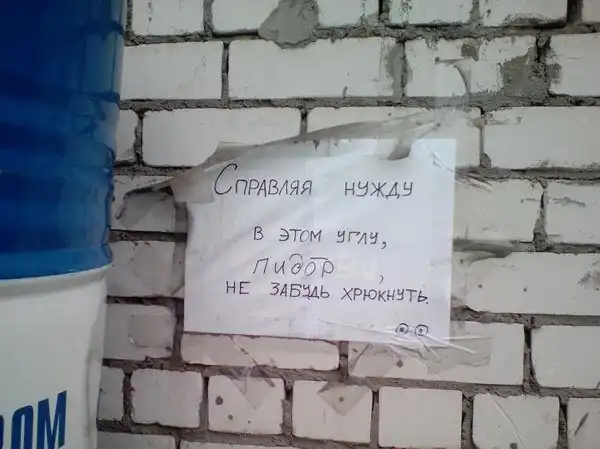 Справляя нужду
в этом углу,
пидор,
не забудь хрюкнуть.
ОМ